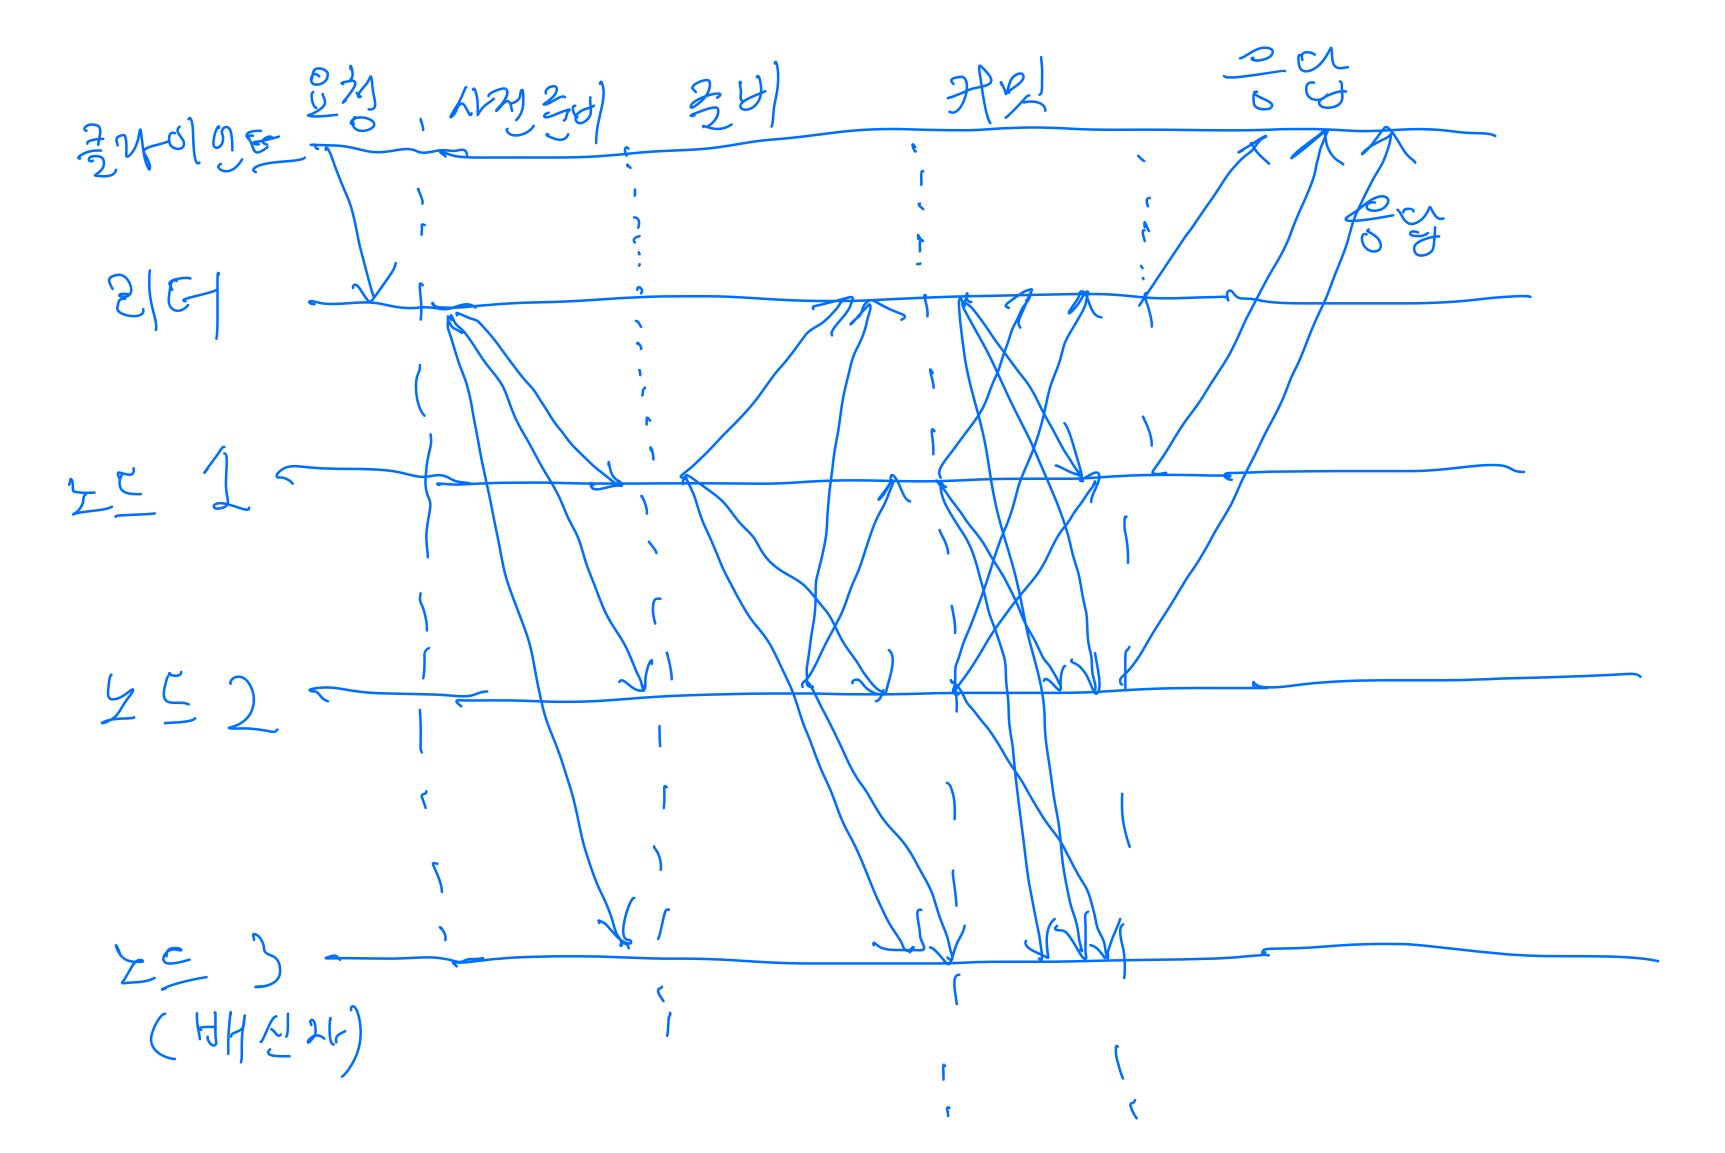 요청 사전준비 준비 커밋 응답
클라이언트
응답
리더
노드 1
노드 2
노드 3
(배신자)